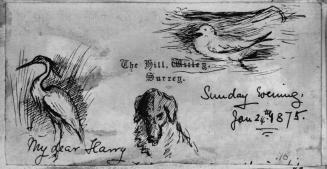 The Hill, Witley,
Surrey.
Sunday Evening.
Jan 24th 1875.
My dear Harry